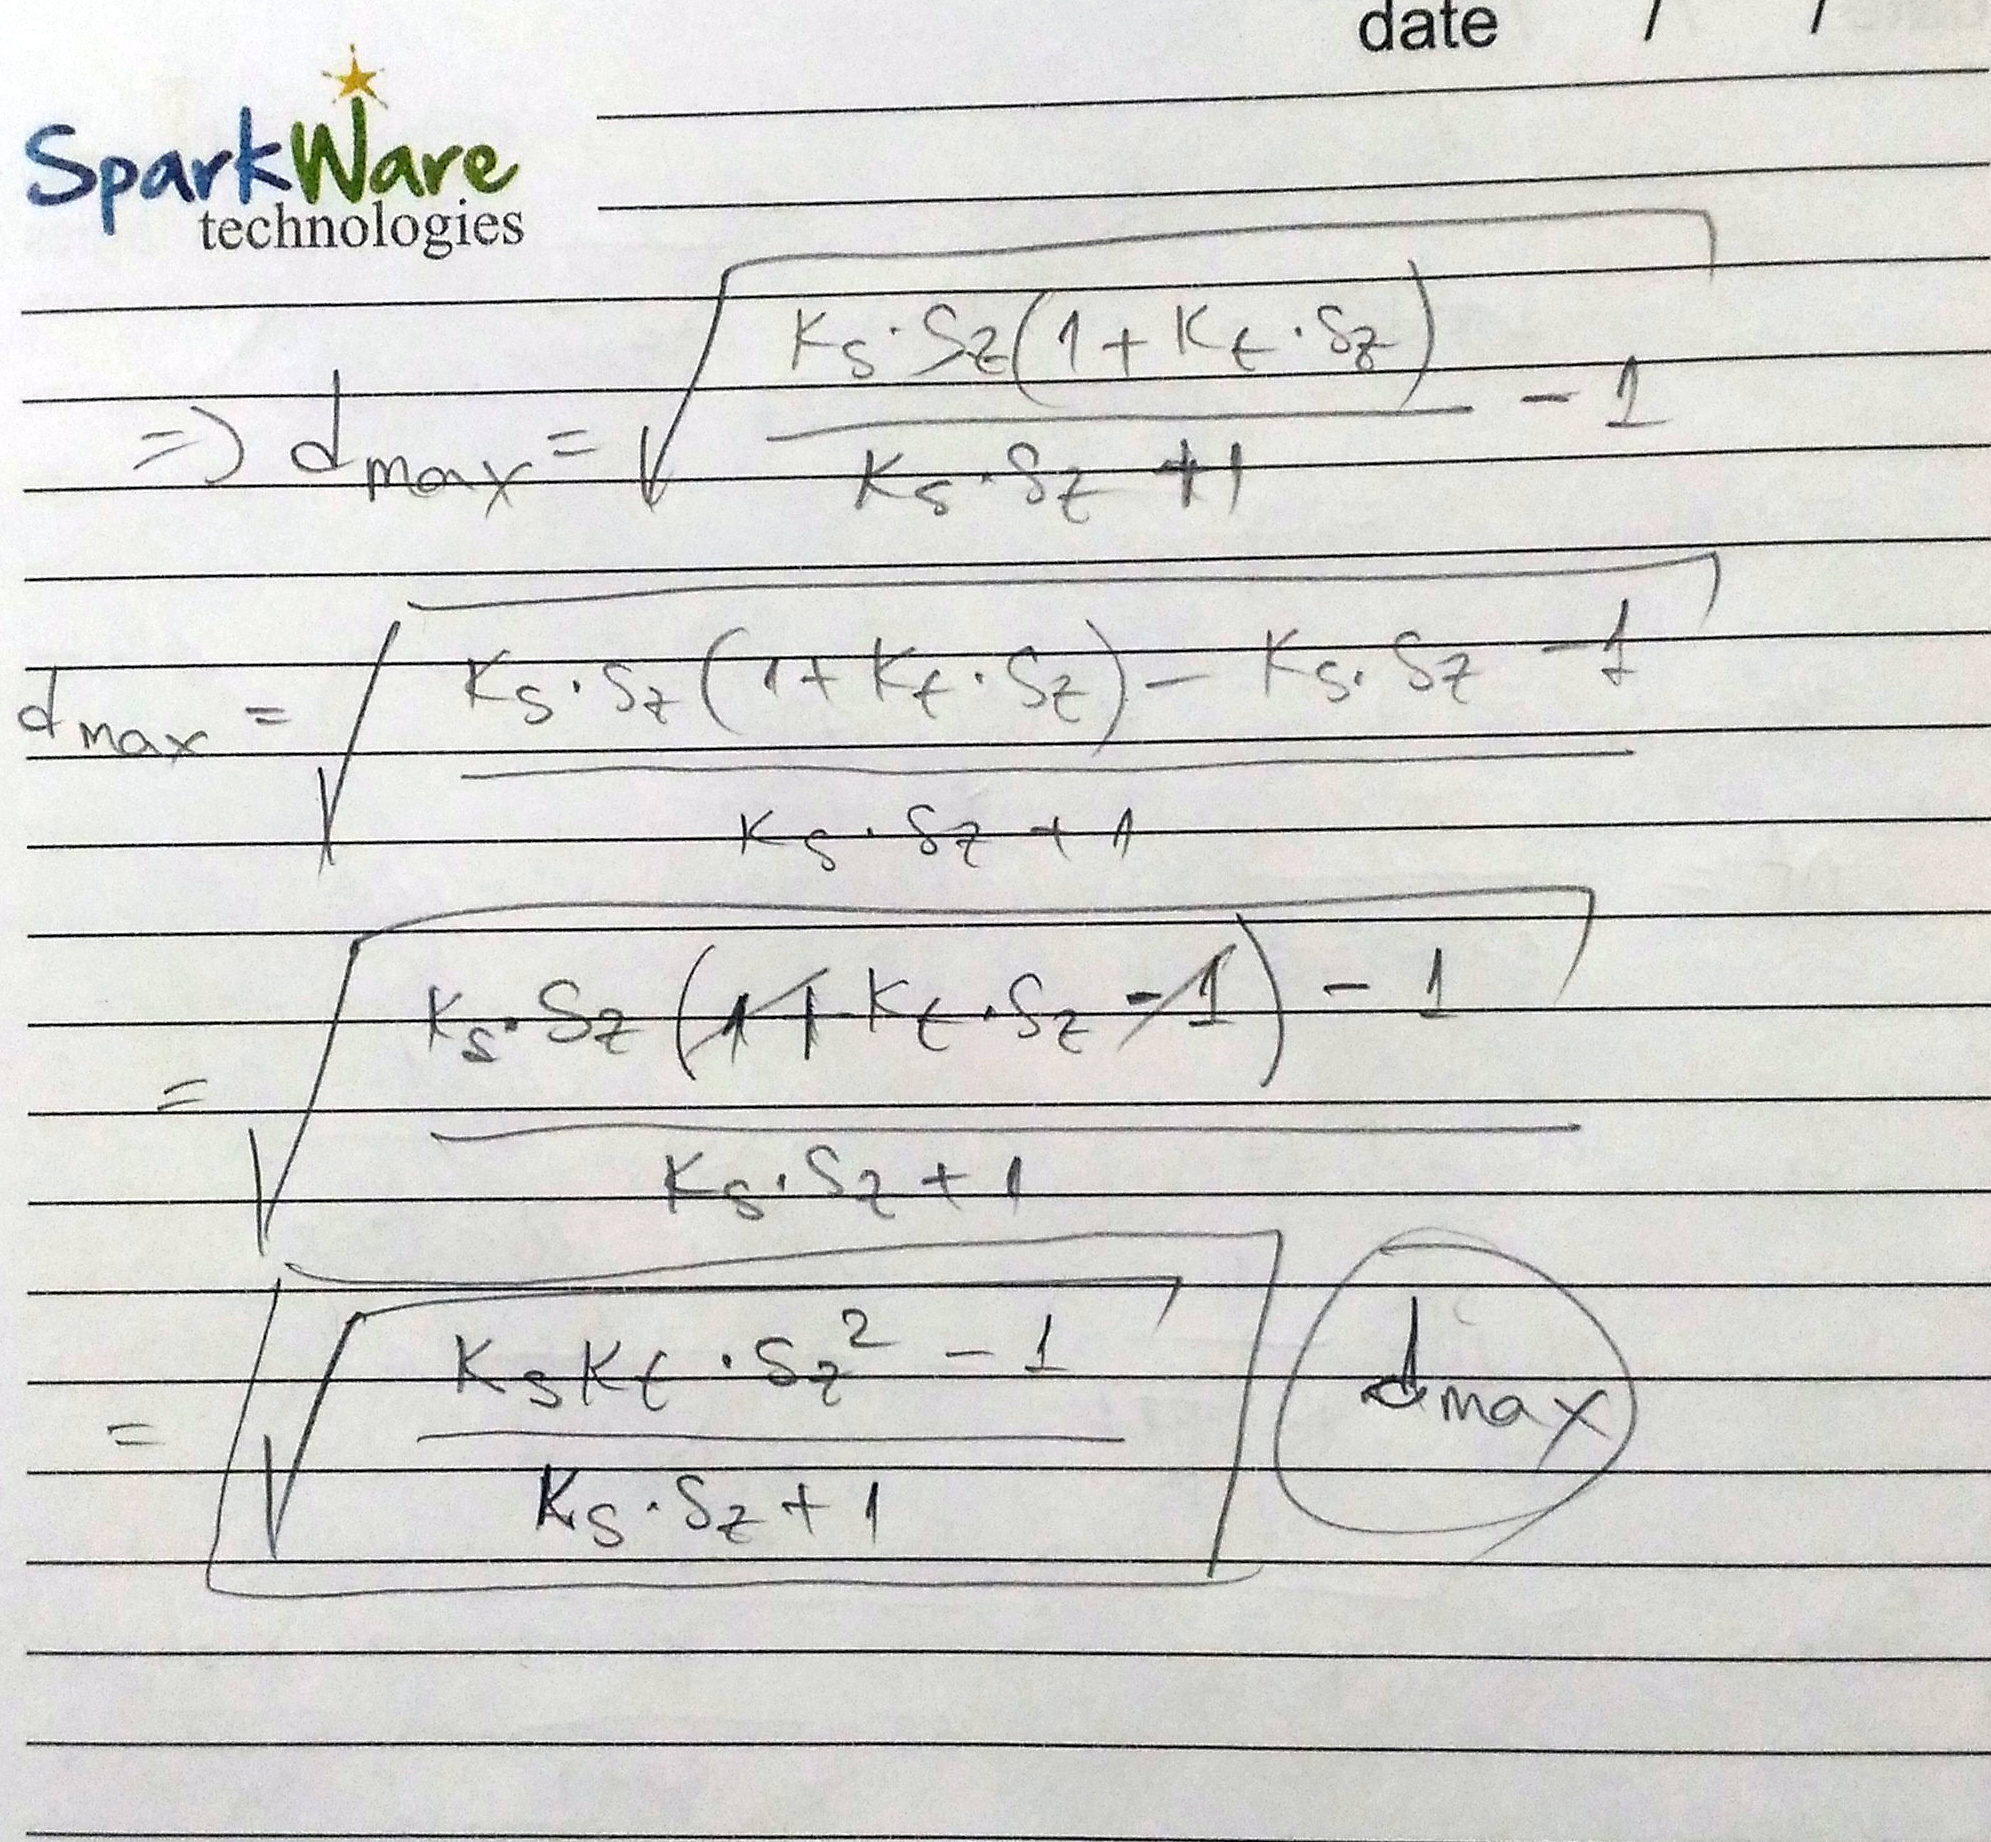 date / /
SparkWare
technologies
=> d_max = √((K_s · S_z (1 + K_t · S_z)) / (K_s · S_z + 1) - 1)
d_max = √((K_s · S_z (1 + K_t · S_z) - K_s · S_z - 1) / (K_s · S_z + 1))
= √((K_s · S_z (1 + K_t · S_z - 1) - 1) / (K_s · S_z + 1))
= √((K_s K_t · S_z² - 1) / (K_s · S_z + 1)) d_max